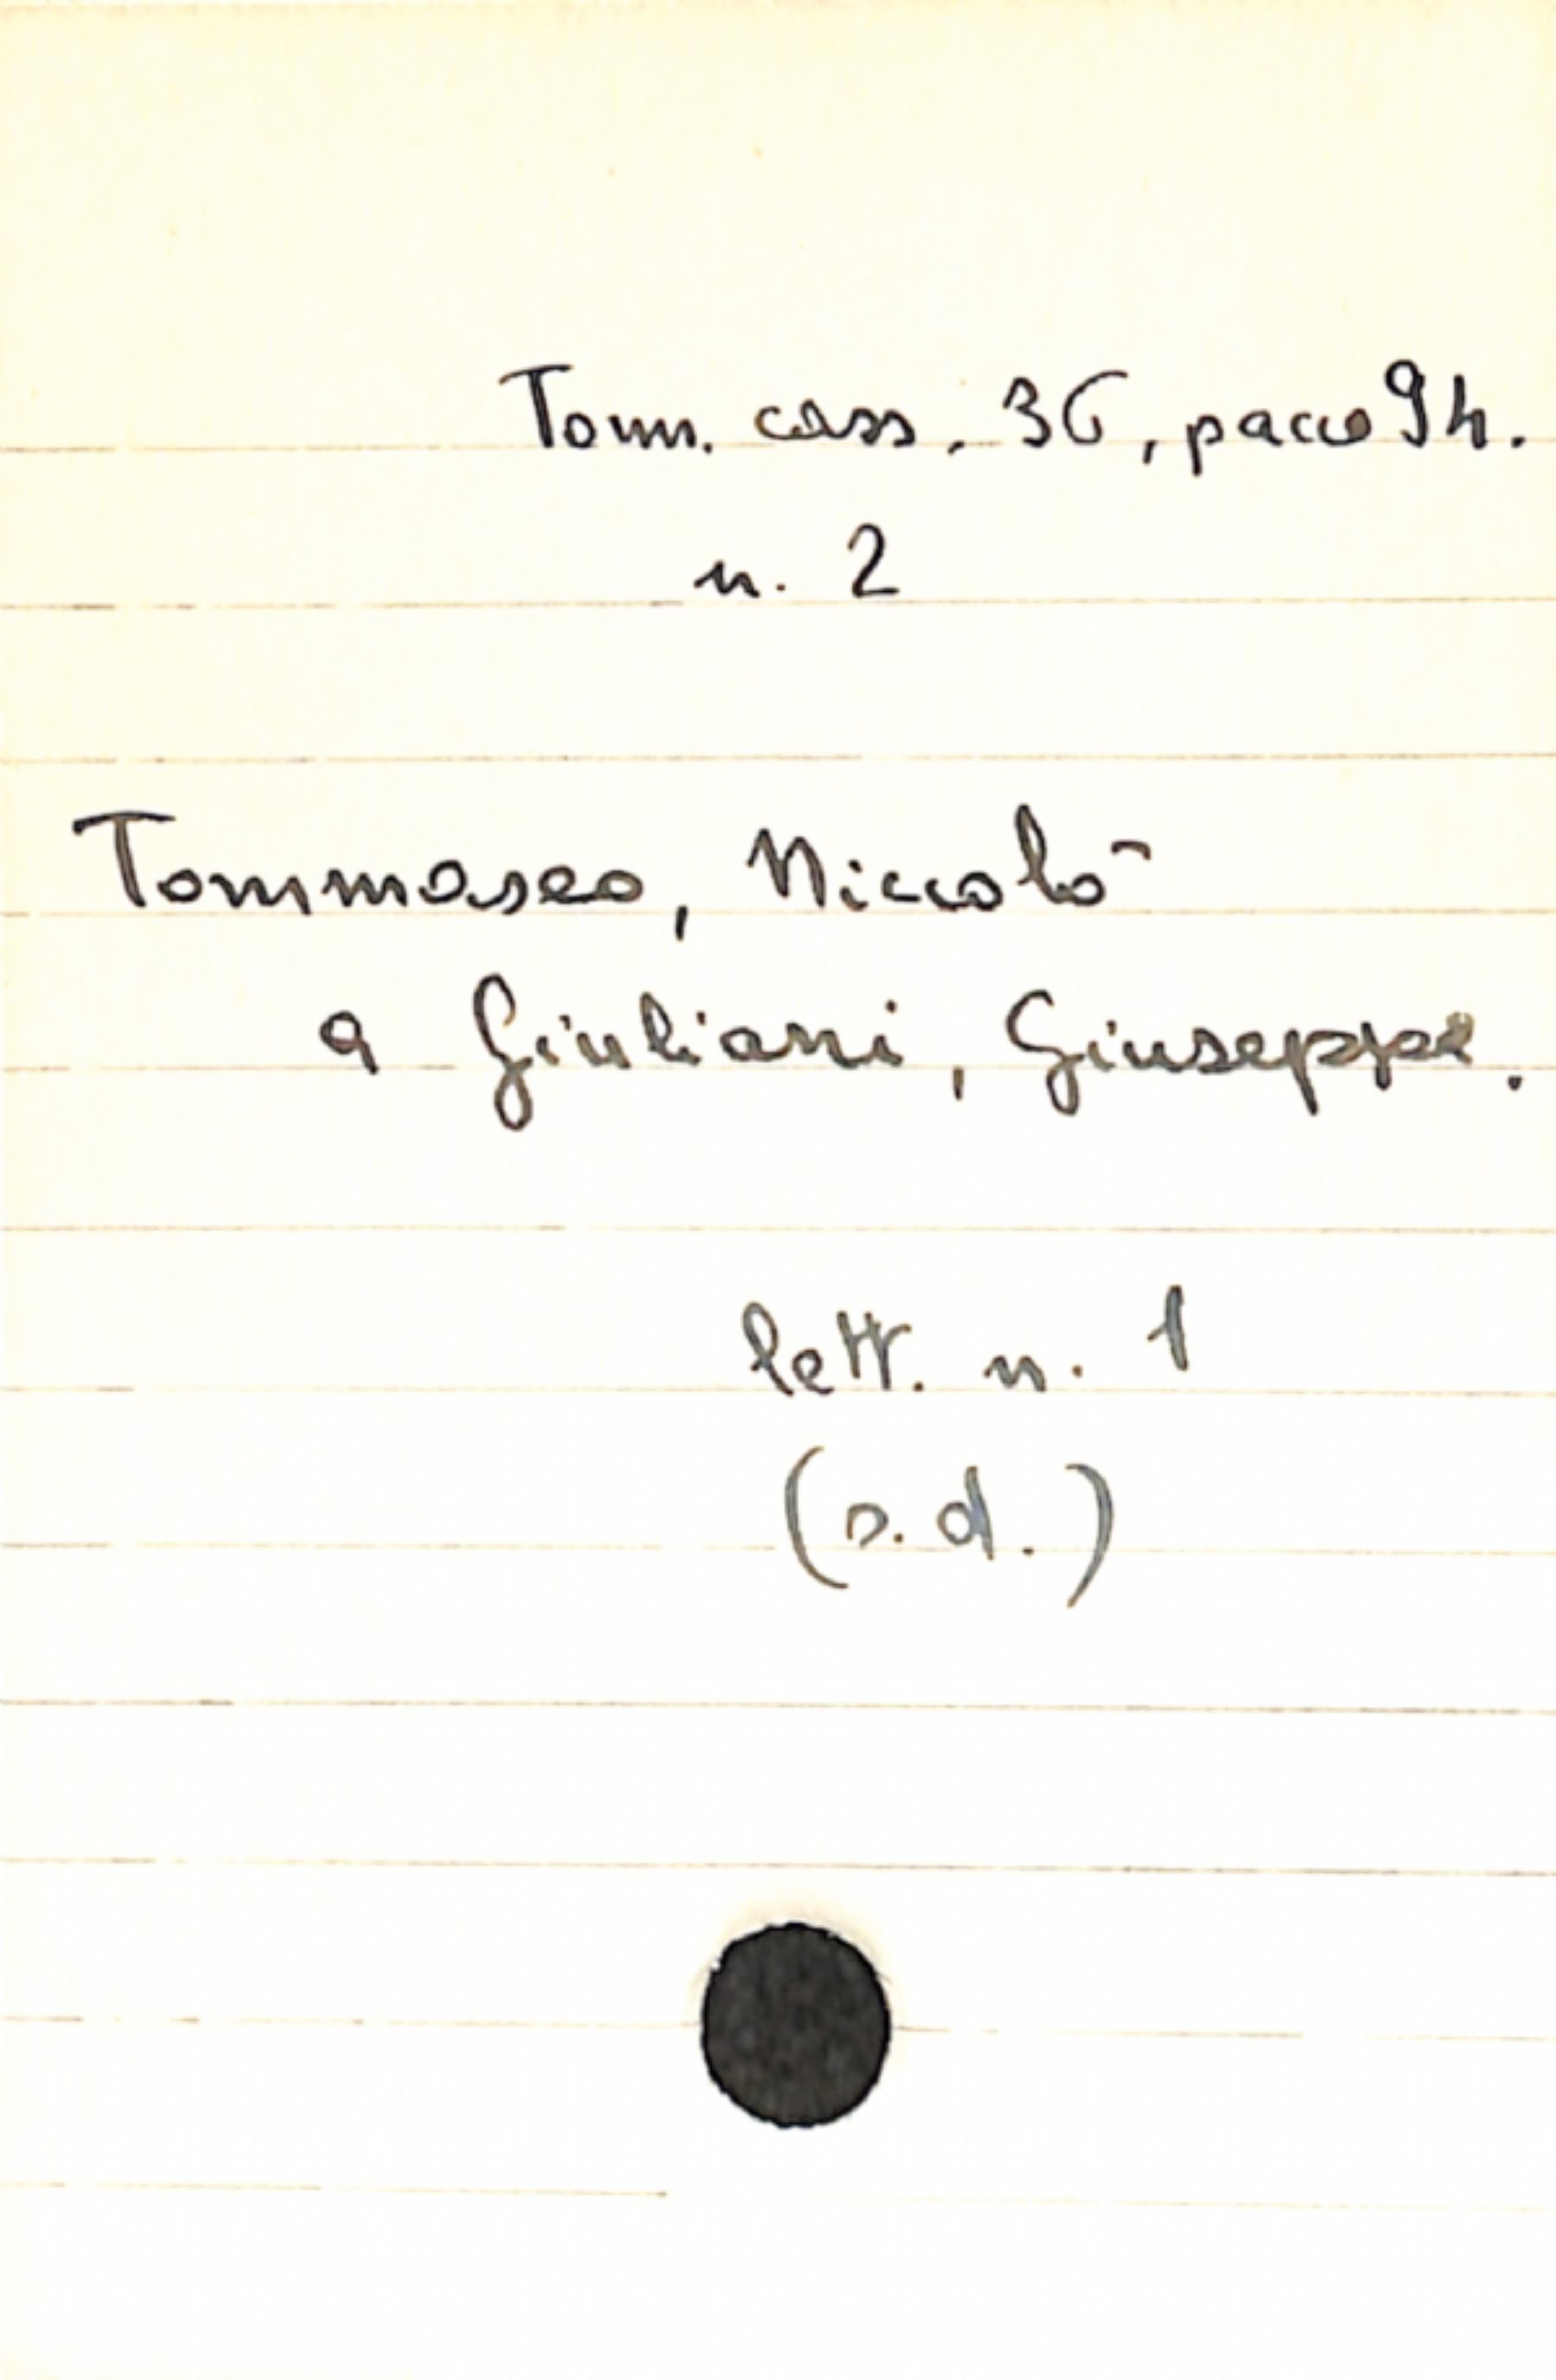 Tomm. cass. 36, pacco 94.
n. 2
Tommaseo, Niccolò
a Giuliani, Giuseppe.
lett. n. 1
(s.d.)